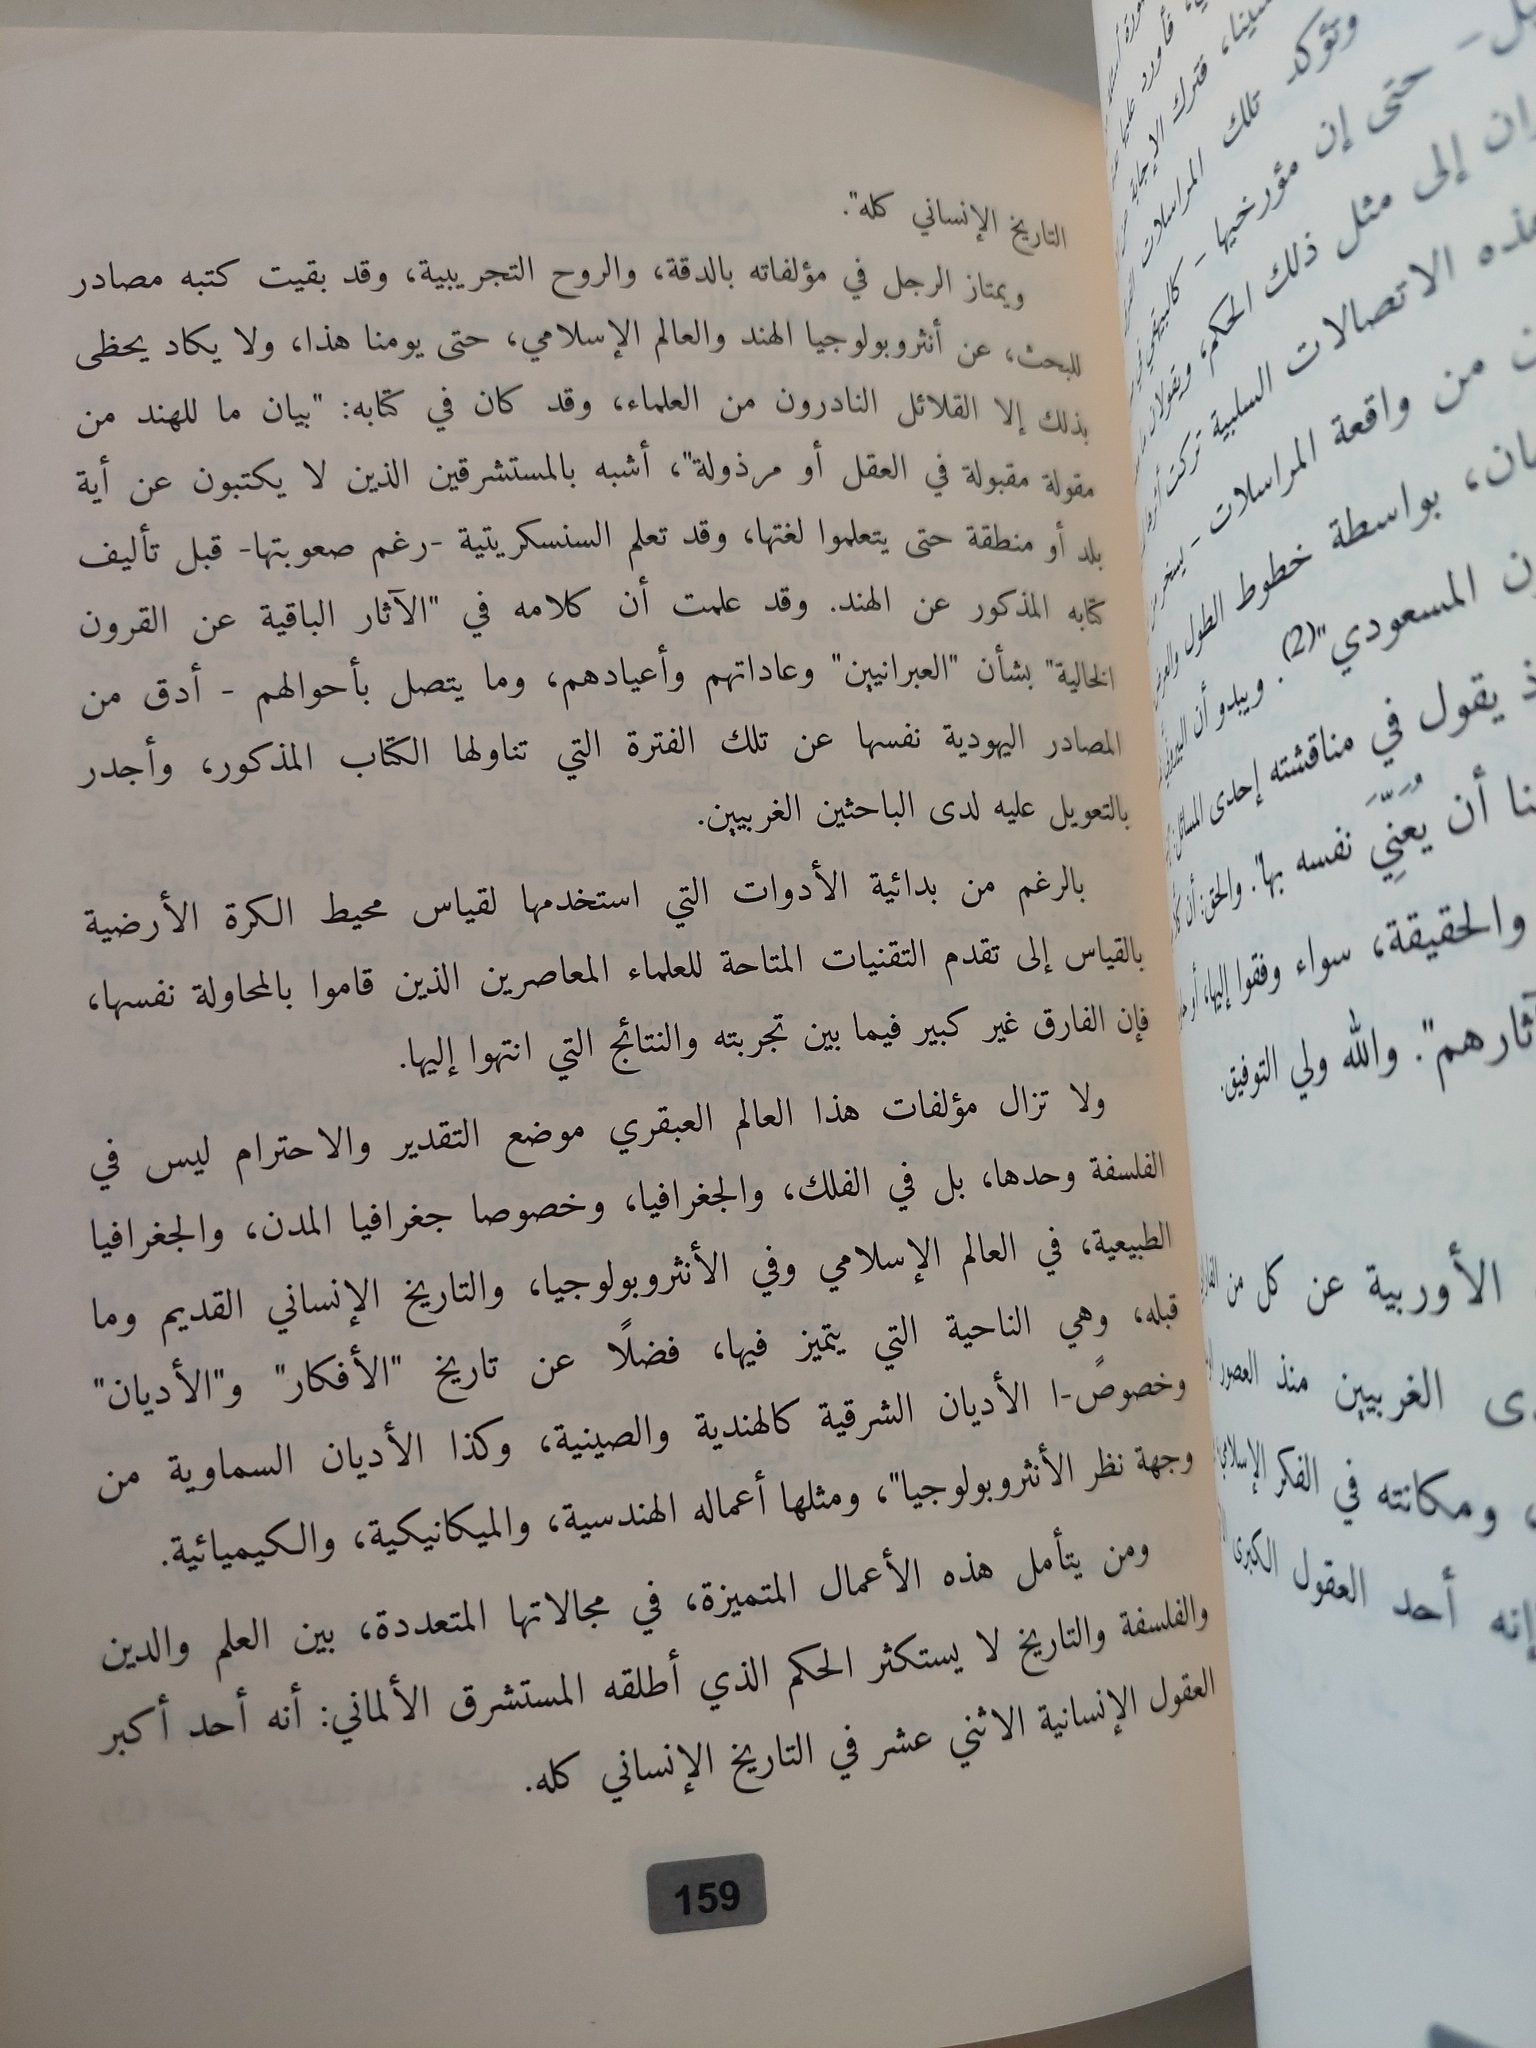 التاريخ الإنساني كله".
ويمتاز الرجل في مؤلفاته بالدقة، والروح التجريبية، وقد بقيت كتبه مصادر
للبحث، عن أنثروبولوجيا الهند والعالم الإسلامي، حتى يومنا هذا، ولا يكاد يحظى
بذلك إلا القلائل النادرون من العلماء، وقد كان في كتابه: "بيان ما للهند من
مقولة مقبولة في العقل أو مرذولة"، أشبه بالمستشرقين الذين لا يكتبون عن أية
بلد أو منطقة حتى يتعلموا لغتها، وقد تعلم السنسكريتية -رغم صعوبتها- قبل تأليف
كتابه المذكور عن الهند. وقد علمت أن كلامه في "الآثار الباقية عن القرون
الخالية" بشأن "العبرانيين" وعاداتهم وأعيادهم، وما يتصل بأحوالهم - أدق من
المصادر اليهودية نفسها عن تلك الفترة التي تناولها الكتاب المذكور، وأجدر
بالتعويل عليه لدى الباحثين الغربيين.
بالرغم من بدائية الأدوات التي استخدمها لقياس محيط الكرة الأرضية
بالقياس إلى تقدم التقنيات المتاحة للعلماء المعاصرين الذين قاموا بالمحاولة نفسها،
فإن الفارق غير كبير فيما بين تجربته والنتائج التي انتهوا إليها.
ولا تزال مؤلفات هذا العالم العبقري موضع التقدير والاحترام ليس في
الفلسفة وحدها، بل في الفلك، والجغرافيا، وخصوصا جغرافيا المدن، والجغرافيا
الطبيعية، في العالم الإسلامي وفي الأنثروبولوجيا، والتاريخ الإنساني القديم وما
قبله، وهي الناحية التي يتميز فيها، فضلًا عن تاريخ "الأفكار" و"الأديان"
وخصوصً-ا الأديان الشرقية كالهندية والصينية، وكذا الأديان السماوية من
وجهة نظر الأنثروبولوجيا"، ومثلها أعماله الهندسية، والميكانيكية، والكيميائية.
ومن يتأمل هذه الأعمال المتميزة، في مجالاتها المتعددة، بين العلم والدين
والفلسفة والتاريخ لا يستكثر الحكم الذي أطلقه المستشرق الألماني: أنه أحد أكبر
العقول الإنسانية الاثني عشر في التاريخ الإنساني كله.
159
وتؤكد تلك المراسلات
حتى إن مؤرخيها -
إلى مثل ذلك الحكم، ويقولان
الاتصالات السلبية تركت
من واقعة المراسلات -
بواسطة خطوط الطول
المسعودي"(2). ويبدو أن
يقول في مناقشته إحدى المسائل:
أن يُعَنِّيَ نفسه بها". والحق: أن
والحقيقة، سواء وفقوا إليها، أو
آثارهم". والله ولي التوفيق.
الأوربية عن كل من
الغربيين منذ العصور
ومكانته في الفكر الإسلامي
أحد العقول الكبرى